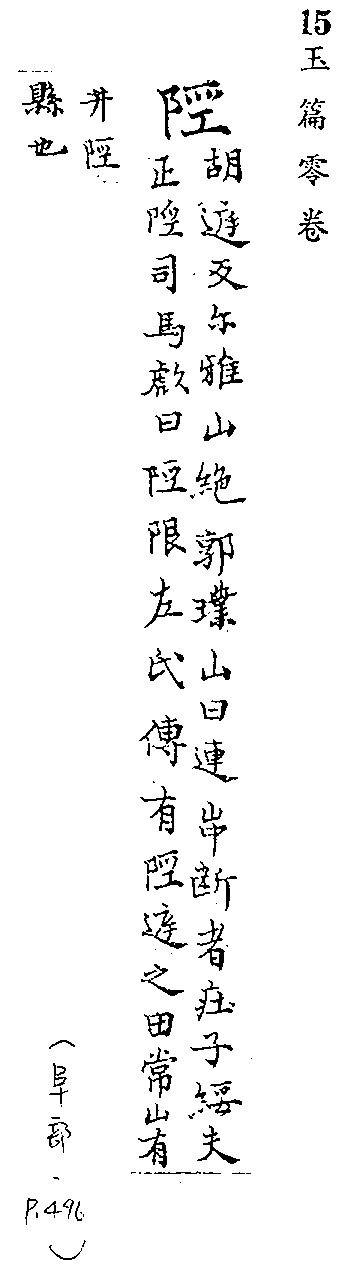 15
玉篇零卷
陘
胡𨓍反尓雅山絶郭璞山曰連岪断者莊子綏夫
正陘司馬彪曰陘限左氏傳有陘𨓍之田常山有
井陘
縣也
(阜部.P.496)